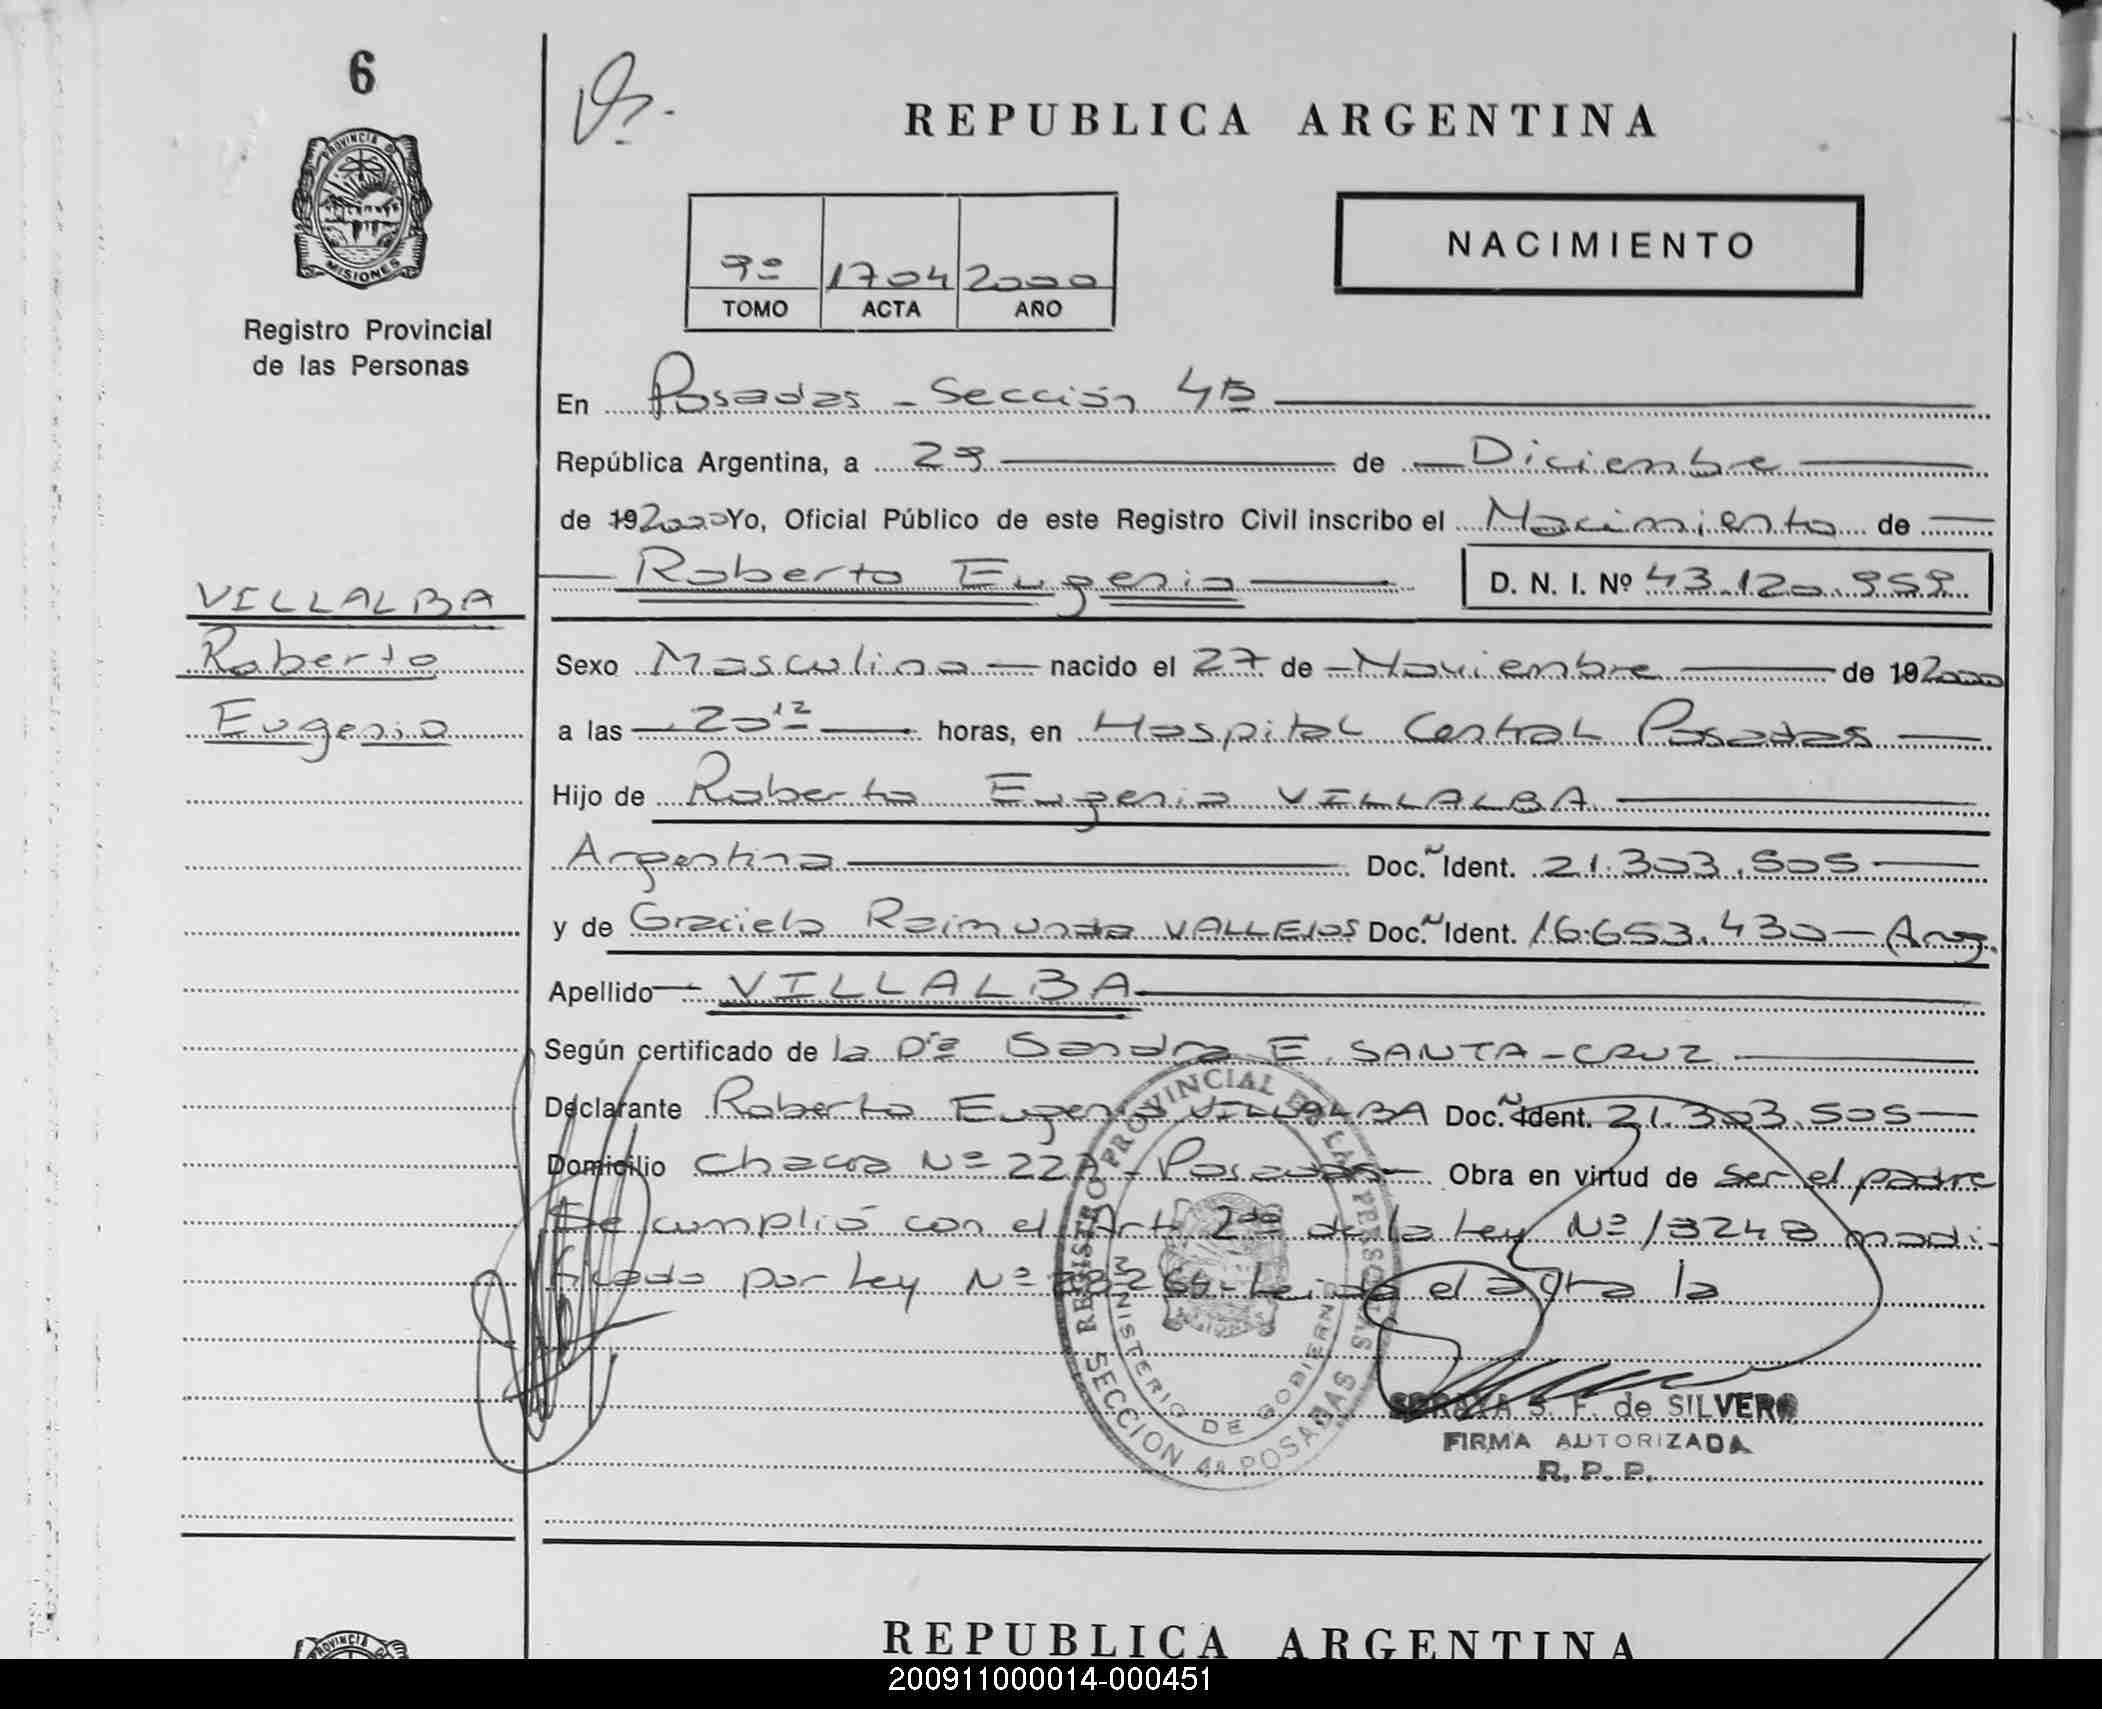 6
PROVINCIA DE
MISIONES
Registro Provincial
de las Personas
VILLALBA
Roberto
Eugenio
REPUBLICA ARGENTINA
9º 1704 2000
TOMO ACTA AÑO
NACIMIENTO
En Posadas - Sección 4ª
República Argentina, a 29 de Diciembre
de 19 2000 Yo, Oficial Público de este Registro Civil inscribo el Nacimiento de
Roberto Eugenio D. N. I. Nº 43.120.959
Sexo Masculino nacido el 27 de Noviembre de 19 2000
a las 20 12 horas, en Hospital Central Posadas
Hijo de Roberto Eugenio VILLALBA
Argentino Doc. Ident. 21.303.505
y de Graciela Raimunda VALLEJOS Doc. Ident. 16.653.430 - Arg.
Apellido VILLALBA
Según certificado de la Drª Sandra E. SANTA-CRUZ
Declarante Roberto Eugenio VILLALBA Doc. Ident. 21.303.505
Domicilio Chacra Nº - Posadas Obra en virtud de ser el padre
Se cumplió con el Art. 2do de la Ley Nº 13248 modi-
ficado por Ley Nº - Leida el acta la
REGISTRO PROVINCIAL DE LAS PERSONAS
MINISTERIO DE GOBIERNO
SECCION 4ª POSADAS
S. F. de SILVERO
FIRMA AUTORIZADA
R. P. P.
REPUBLICA ARGENTINA
PROVINCIA
200911000014-000451